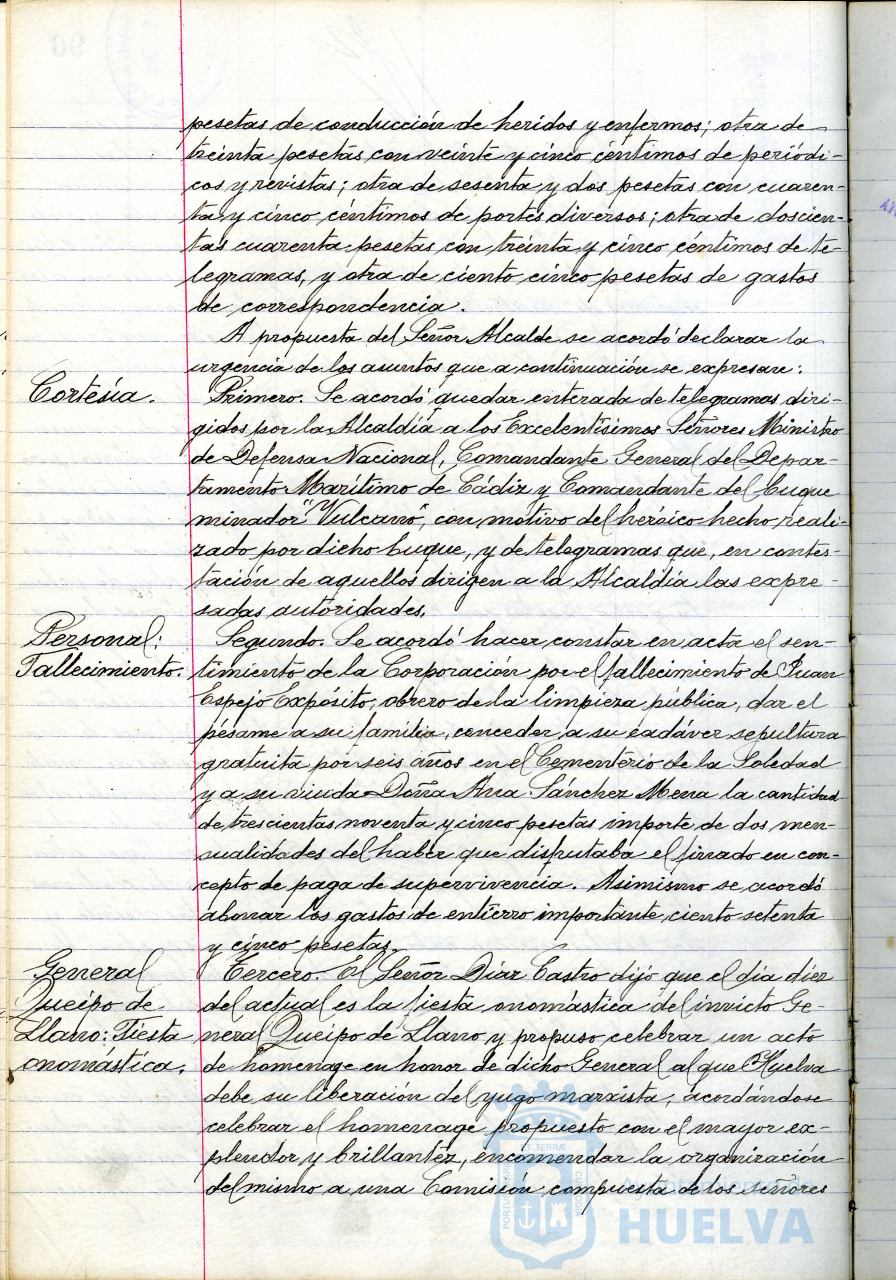 pesetas de conducción de heridos y enfermos; otra de
treinta pesetas con veinte y cinco céntimos de periódi-
cos y revistas; otra de sesenta y dos pesetas con cuaren-
ta y cinco céntimos de portes diversos; otra de doscien-
tas cuarenta pesetas con treinta y cinco céntimos de te-
legramas, y otra de ciento cinco pesetas de gastos
de correspondencia.
A propuesta del Señor Alcalde se acordó declarar la
urgencia de los asuntos que a continuación se expresan:
Cortesía.
Primero. Se acordó quedar enterada de telegramas diri-
gidos por la Alcaldía a los Excelentísimos Señores Ministro
de Defensa Nacional, Comandante General del Depar-
tamento Marítimo de Cádiz y Comandante del buque
minador "Vulcano", con motivo del heróico hecho reali-
zado por dicho buque, y de telegramas que, en contes-
tación de aquellos dirigen a la Alcaldía las expre-
sadas autoridades.
Personal:
Fallecimiento.
Segundo. Se acordó hacer constar en acta el sen-
timiento de la Corporación por el fallecimiento de Juan
Espejo Expósito, obrero de la limpieza pública, dar el
pésame a su familia, conceder a su cadáver sepultura
gratuita por seis años en el Cementerio de la Soledad
y a su viuda Doña Ana Sánchez Mena la cantidad
de trescientas noventa y cinco pesetas importe de dos men-
sualidades del haber que disfrutaba el finado en con-
cepto de paga de supervivencia. Asimismo se acordó
abonar los gastos de entierro importante ciento setenta
y cinco pesetas.
General
Queipo de
Llano: Fiesta
onomástica.
Tercero. El Señor Díaz Castro dijo que el día diez
del actual es la fiesta onomástica del invicto Ge-
neral Queipo de Llano y propuso celebrar un acto
de homenage en honor de dicho General al que Huelva
debe su liberación del yugo marxista, acordándose
celebrar el homenage propuesto con el mayor ex-
plendor y brillantez, encomendar la organización
del mismo a una Comisión compuesta de los señores
Ayuntamiento de
HUELVA